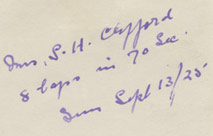 Mrs. S. H. Clifford
8 laps in 70 Sec.
Sun Sept 13/25